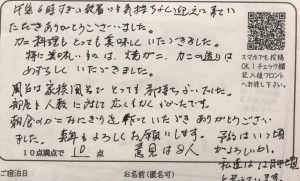 午後6時すぎの到着にも気持ちよく迎えに来ていただきありがとうございました。
カニ料理もとっても美味しくいただきました。
特に美味しいものは、焼ガニ、カニの造りは
めずらしく いただきました。
風呂は家族風呂で とっても気持ちがいでした。
部屋も人数に対して 広くてよかったです。
朝食のカニおにぎりを作っていただき ありがとうござい
ました。 来年もよろしくお願いします。 予約はいつ頃
がよろしいか。
10点満点で 10 点 意見は8人
私達は12月中頃
と思っています。
スマホでも投稿
OK!チェック欄
記入後フロント
へお渡し下さい。
ご宿泊日 お名前(匿名可)